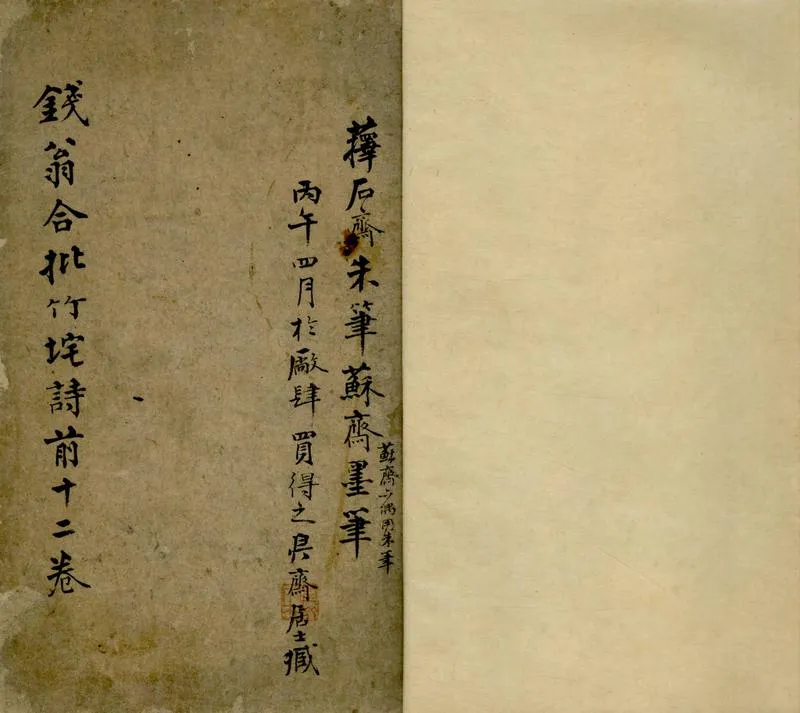 蘀石齋朱筆蘇齋墨筆
蘇齋亦偶用朱筆
丙午四月於廠肆買得之
齋居士臧
錢翁合批竹垞詩前十二卷